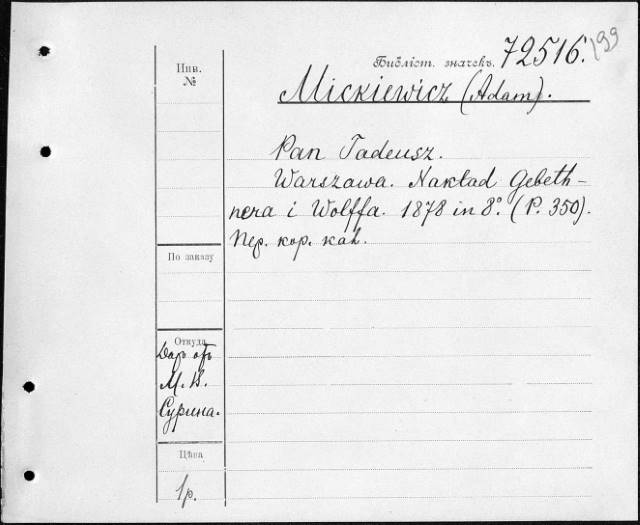 Библіот. значекъ. 72516. 199
Инв.
№
Mickiewicz (Adam).
Pan Tadeusz.
Warszawa. Nakład Gebeth-
nera i Wolffa. 1878 in 8º. (P. 350).
Пер. кор. кал.
По заказу
Откуда
Даръ отъ
М. В.
Сурина.
Цѣна
1р.